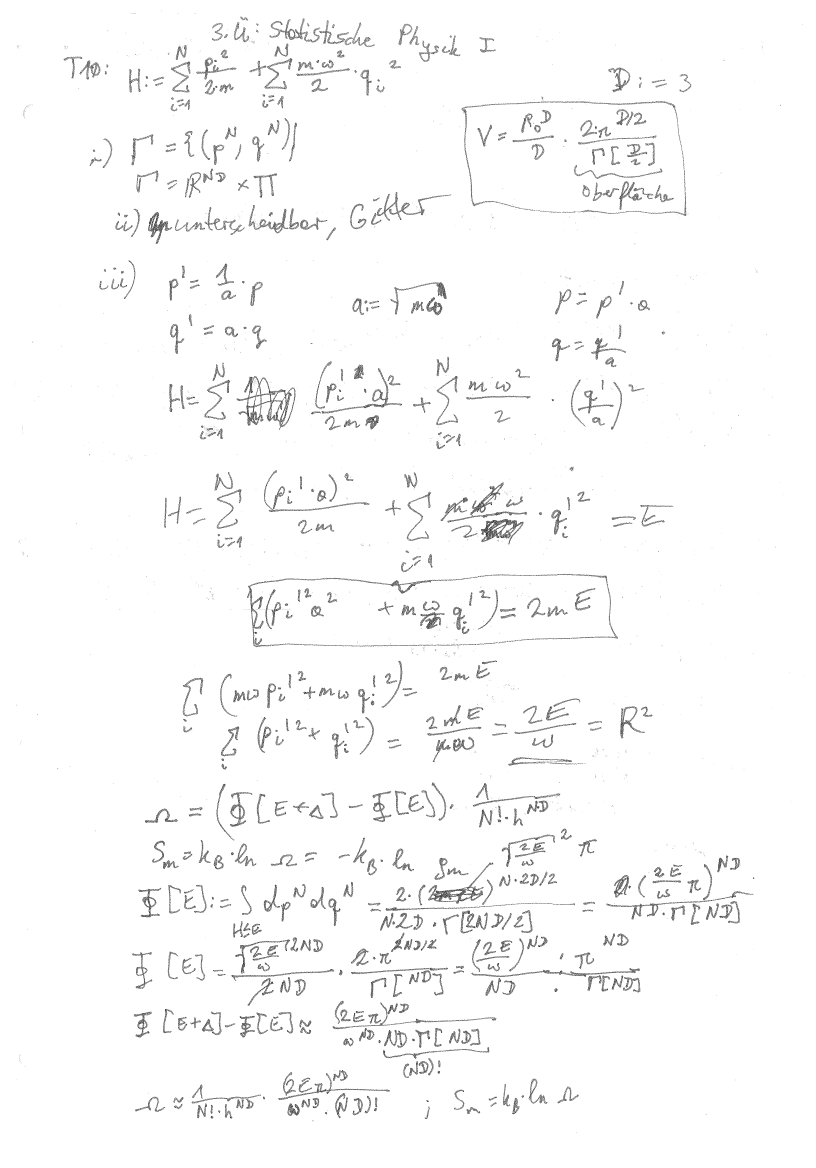 3.Ü: Statistische Physik I
T10: H:= ∑_{i=1}^{N} p_i^2/(2·m) + ∑_{i=1}^{N} (m·ω^2)/2 · q_i^2
D:=3
i) Γ={(p^N, q^N)}
V = R_0^D/D · 2·π^{D/2}/Γ[D/2]
Γ=ℝ^{ND} × Π
Oberfläche
ii) unterscheidbar, Gitter
iii) p' = 1/a · p
a:= √(mω)
p = p'·a
q' = a·q
q = q'/a
H = ∑_{i=1}^{N} (p_i'·a)^2/(2m) + ∑_{i=1}^{N} (mω^2)/2 · (q'/a)^2
H = ∑_{i=1}^{N} (p_i'·a)^2/(2m) + ∑_{i=1}^{N} ω/2 · q_i'^2 = E
∑_i (p_i'^2 a^2 + m ω q_i'^2) = 2mE
∑_i (mω p_i'^2 + mω q_i'^2) = 2mE
∑_i (p_i'^2 + q_i'^2) = 2mE/(mω) = 2E/ω = R^2
Ω = (Φ[E+Δ] − Φ[E]) · 1/(N!·h^{ND})
S_m = k_B·ln Ω = −k_B·ln ρ_m
√(2E/ω)^2 π
Φ[E] := ∫_{H≤E} dp^N dq^N = 2·( )^{N·2D/2}/(N·2D·Γ[2ND/2]) = (2E/ω π)^{ND}/(ND·Γ[ND])
Φ[E] = √(2E/ω)^{2ND}/(2ND) · 2·π^{2ND/2}/Γ[ND] = (2E/ω)^{ND}/ND · π^{ND}/Γ[ND]
Φ[E+Δ]−Φ[E] ≈ (2Eπ)^{ND}/(ω^{ND}·ND·Γ[ND])
(ND)!
Ω ≈ 1/(N!·h^{ND}) · (2Eπ)^{ND}/(ω^{ND}·(ND)!) ; S_m = k_B·ln Ω